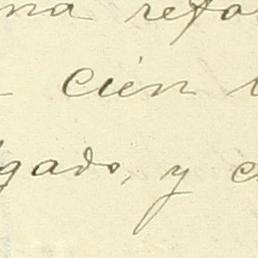 ma refo
cien
gado, y c